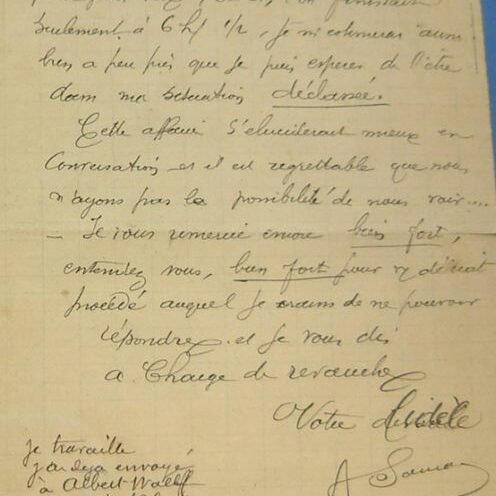 seulement à 6 h 1/2, je m'estimerai aussi
bien à peu près que je puis espérer de l'être
dans ma situation déclassée.
Cette affaire s'éluciderait mieux en
Conversation et il est regrettable que nous
n'ayons pas la possibilité de nous voir....
— Je vous remercie encore bien fort,
entendez vous, bien fort pour délicat
procédé auquel je crains de ne pouvoir
répondre et je vous dis
à Charge de revanche
Votre
je travaille
j'ai déjà envoyé
à Albert Wolff
A Samain